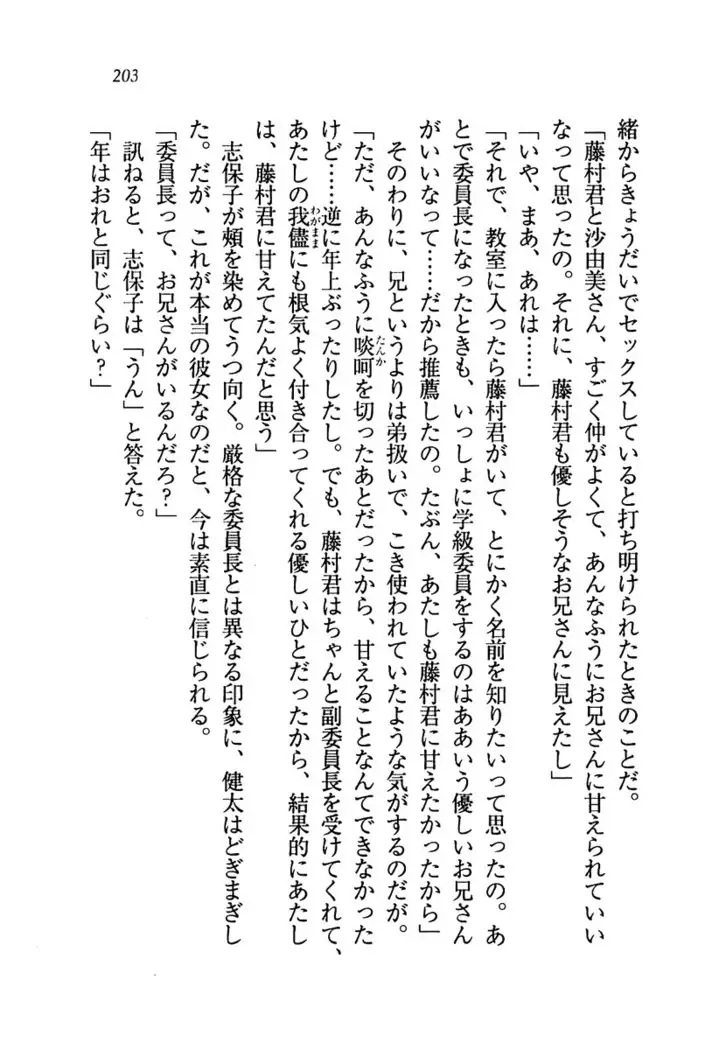 203
緒からきょうだいでセックスしていると打ち明けられたときのことだ。
「藤村君と沙由美さん、すごく仲がよくて、あんなふうにお兄さんに甘えられていい
なって思ったの。それに、藤村君も優しそうなお兄さんに見えたし」
「いや、まあ、あれは……」
「それで、教室に入ったら藤村君がいて、とにかく名前を知りたいって思ったの。あ
とで委員長になったときも、いっしょに学級委員をするのはああいう優しいお兄さん
がいいなって……だから推薦したの。たぶん、あたしも藤村君に甘えたかったから」
そのわりに、兄というよりは弟扱いで、こき使われていたような気がするのだが。
「ただ、あんなふうに啖呵たんかを切ったあとだったから、甘えることなんてできなかった
けど……逆に年上ぶったりしたし。でも、藤村君はちゃんと副委員長を受けてくれて、
あたしの我儘わがままにも根気よく付き合ってくれる優しいひとだったから、結果的にあたし
は、藤村君に甘えてたんだと思う」
志保子が頬を染めてうつ向く。厳格な委員長とは異なる印象に、健太はどぎまぎし
た。だが、これが本当の彼女なのだと、今は素直に信じられる。
「委員長って、お兄さんがいるんだろ？」
訊ねると、志保子は「うん」と答えた。
「年はおれと同じぐらい？」